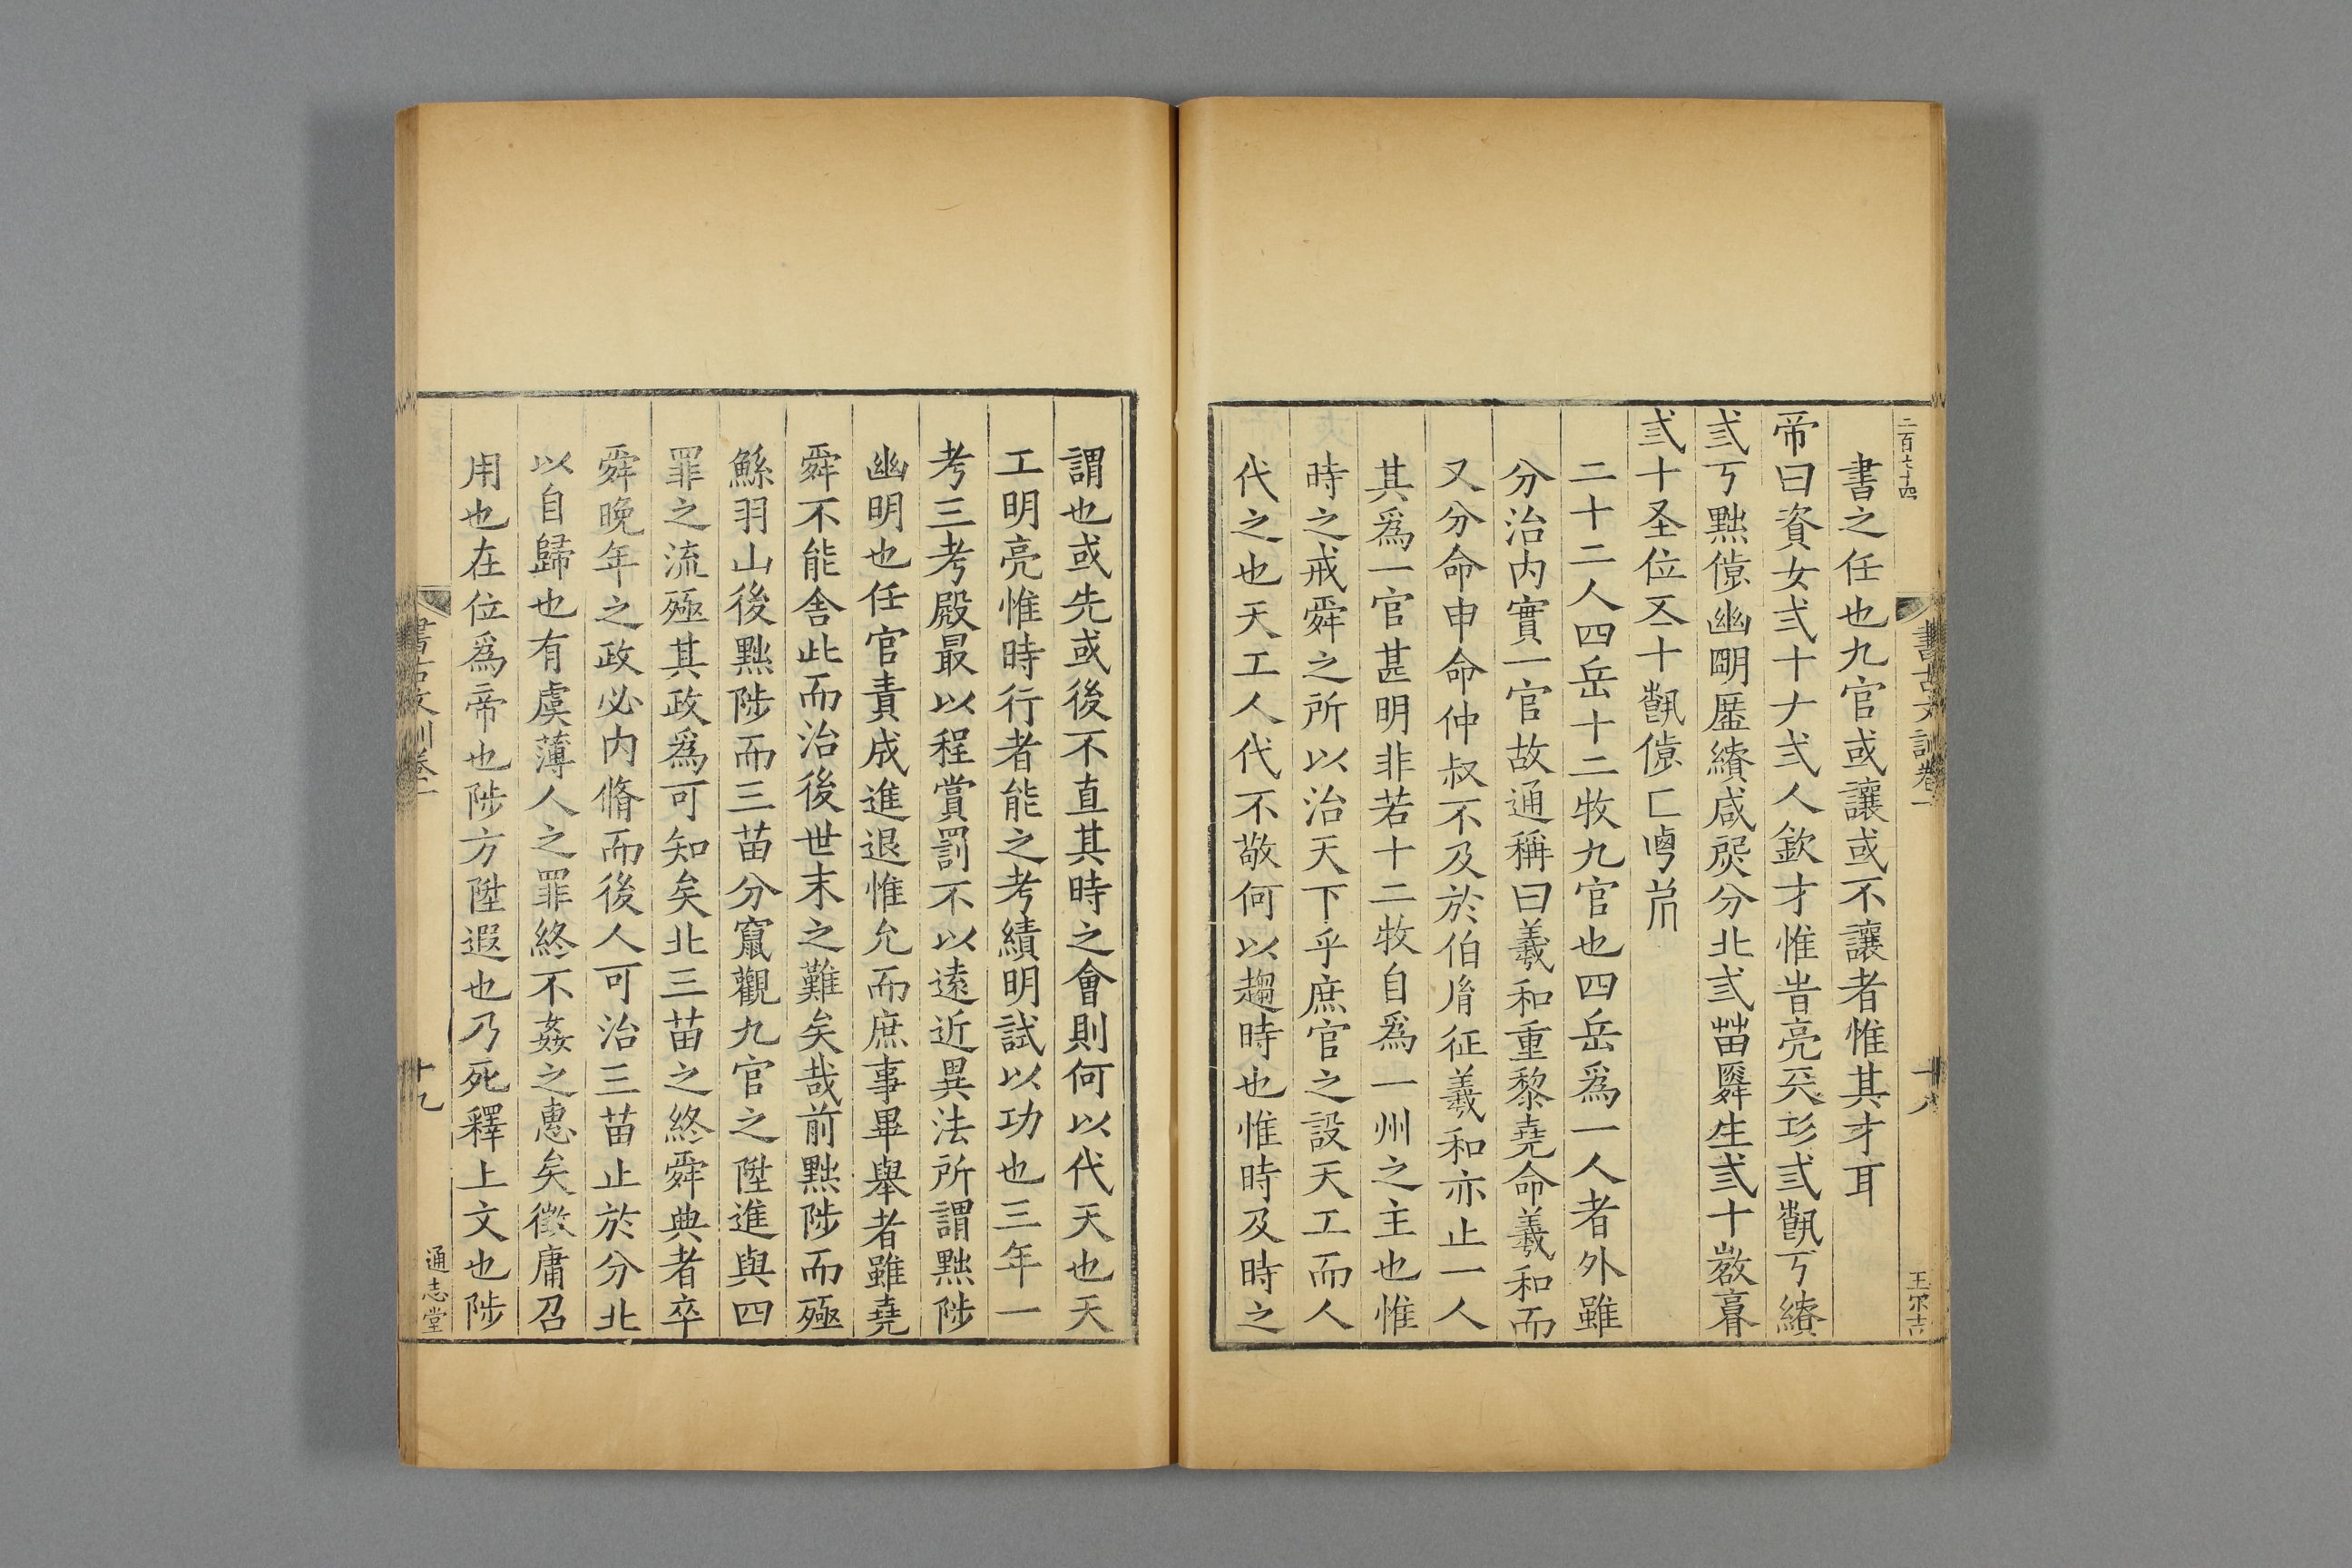 二百七十四
書古文訓卷一
十八
王尔吉
書之任也九官或讓或不讓者惟其才耳
帝曰資女弎十ナ弎人欽才惟旹亮兲㣉弎𢾭丂績
弎丂黜㒤幽朙庶績咸熙分北弎苗舜生弎十徴𠅏
弎十圣位𠄡十𢾭㒤匚
二十二人四岳十二牧九官也四岳爲一人者外雖
分治内實一官故通稱曰羲和重黎堯命羲和而
又分命申命仲叔不及於伯胤征羲和亦止一人
其爲一官甚明非若十二牧自爲一州之主也惟
時之戒舜之所以治天下乎庶官之設天工而人
代之也天工人代不敬何以趨時也惟時及時之
謂也或先或後不直其時之會則何以代天也天
工明亮惟時行者能之考績明試以功也三年一
考三考殿最以程賞罰不以遠近異法所謂黜陟
幽明也任官責成進退惟允而庶事畢舉者雖堯
舜不能舍此而治後世末之難矣哉前黜陟而殛
鯀羽山後黜陟而三苗分竄觀九官之陞進與四
罪之流殛其政爲可知矣北三苗之終舜典者卒
舜晚年之政必内脩而後人可治三苗止於分北
以自歸也有虞薄人之罪終不姦之惠矣徵庸召
用也在位爲帝也陟方陞遐也乃死釋上文也陟
書古文訓卷一
十九
通志堂